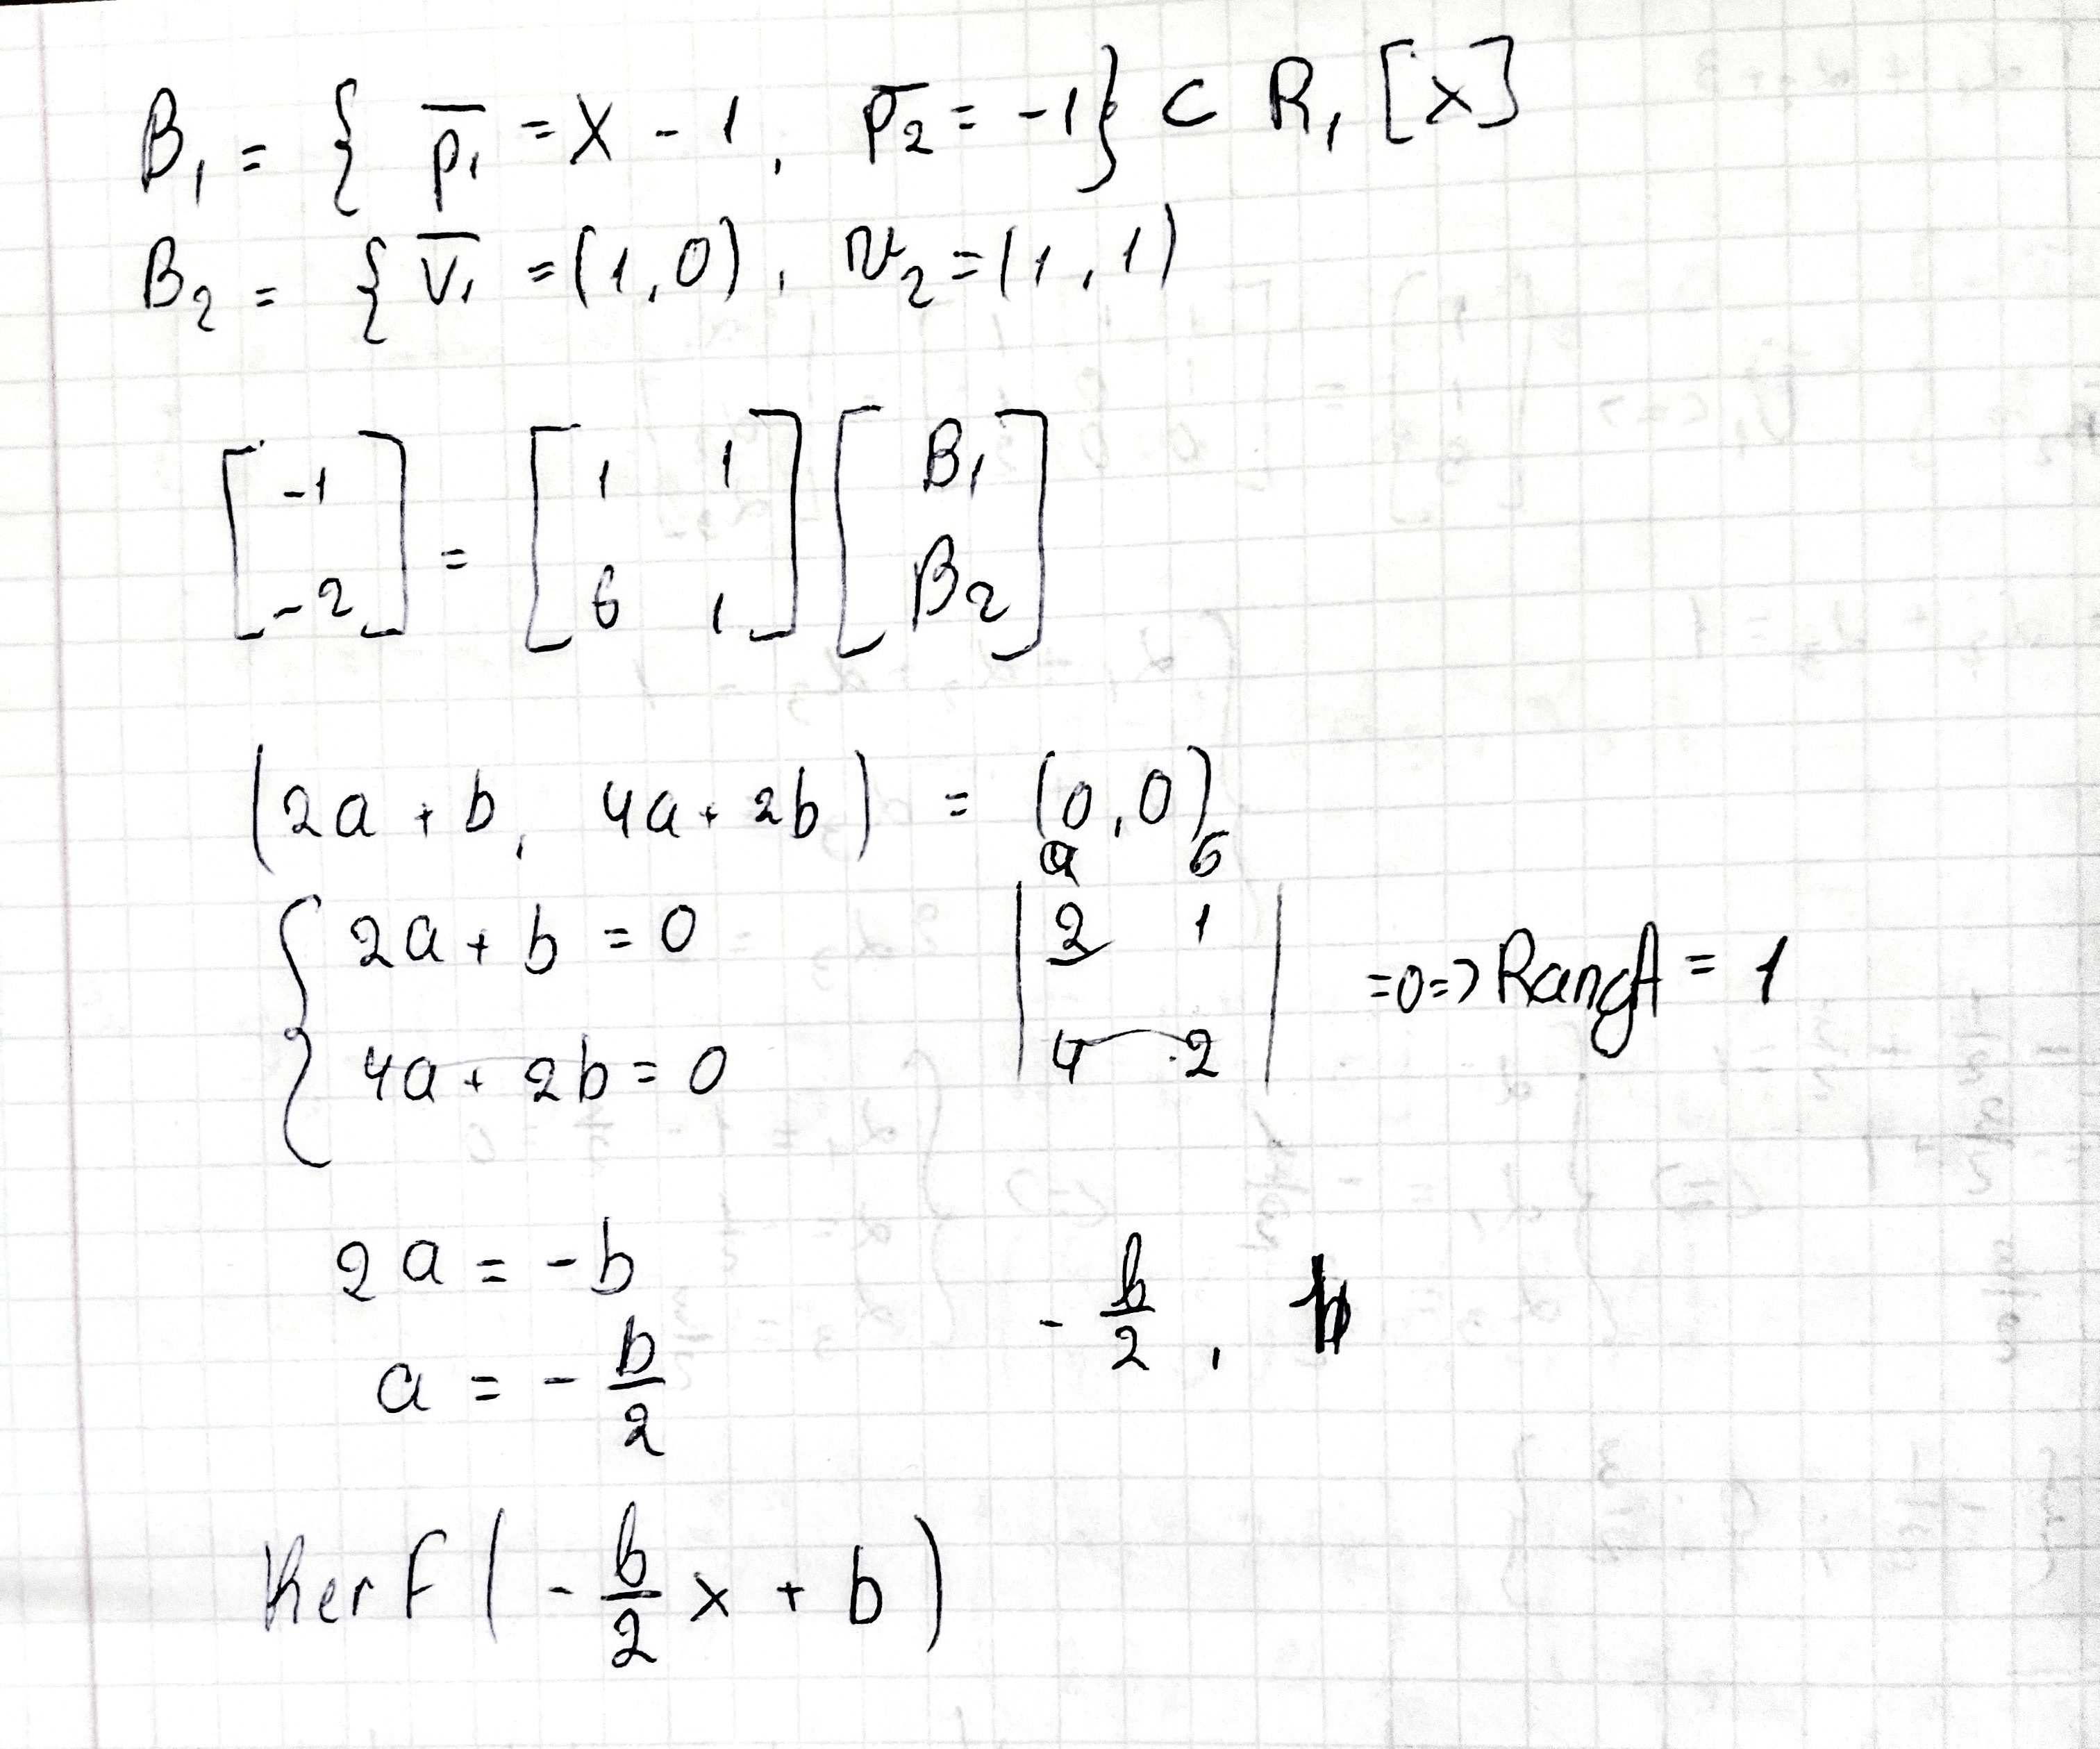 B₁ = { p̅₁ = x - 1, p̅₂ = -1} ⊂ R₁ [x]
B₂ = { v̅₁ = (1,0), v₂ = (1,1)
[-1 -2] = [1 1 6 1] [B₁ B₂]
(2a + b, 4a + 2b) = (0,0)
a b
{ 2a + b = 0 | 2 1 | =0=> Rang A = 1
4a + 2b = 0 4 2
2a = -b
a = - b/2 - b/2, b
Ker F ( - b/2 x + b )